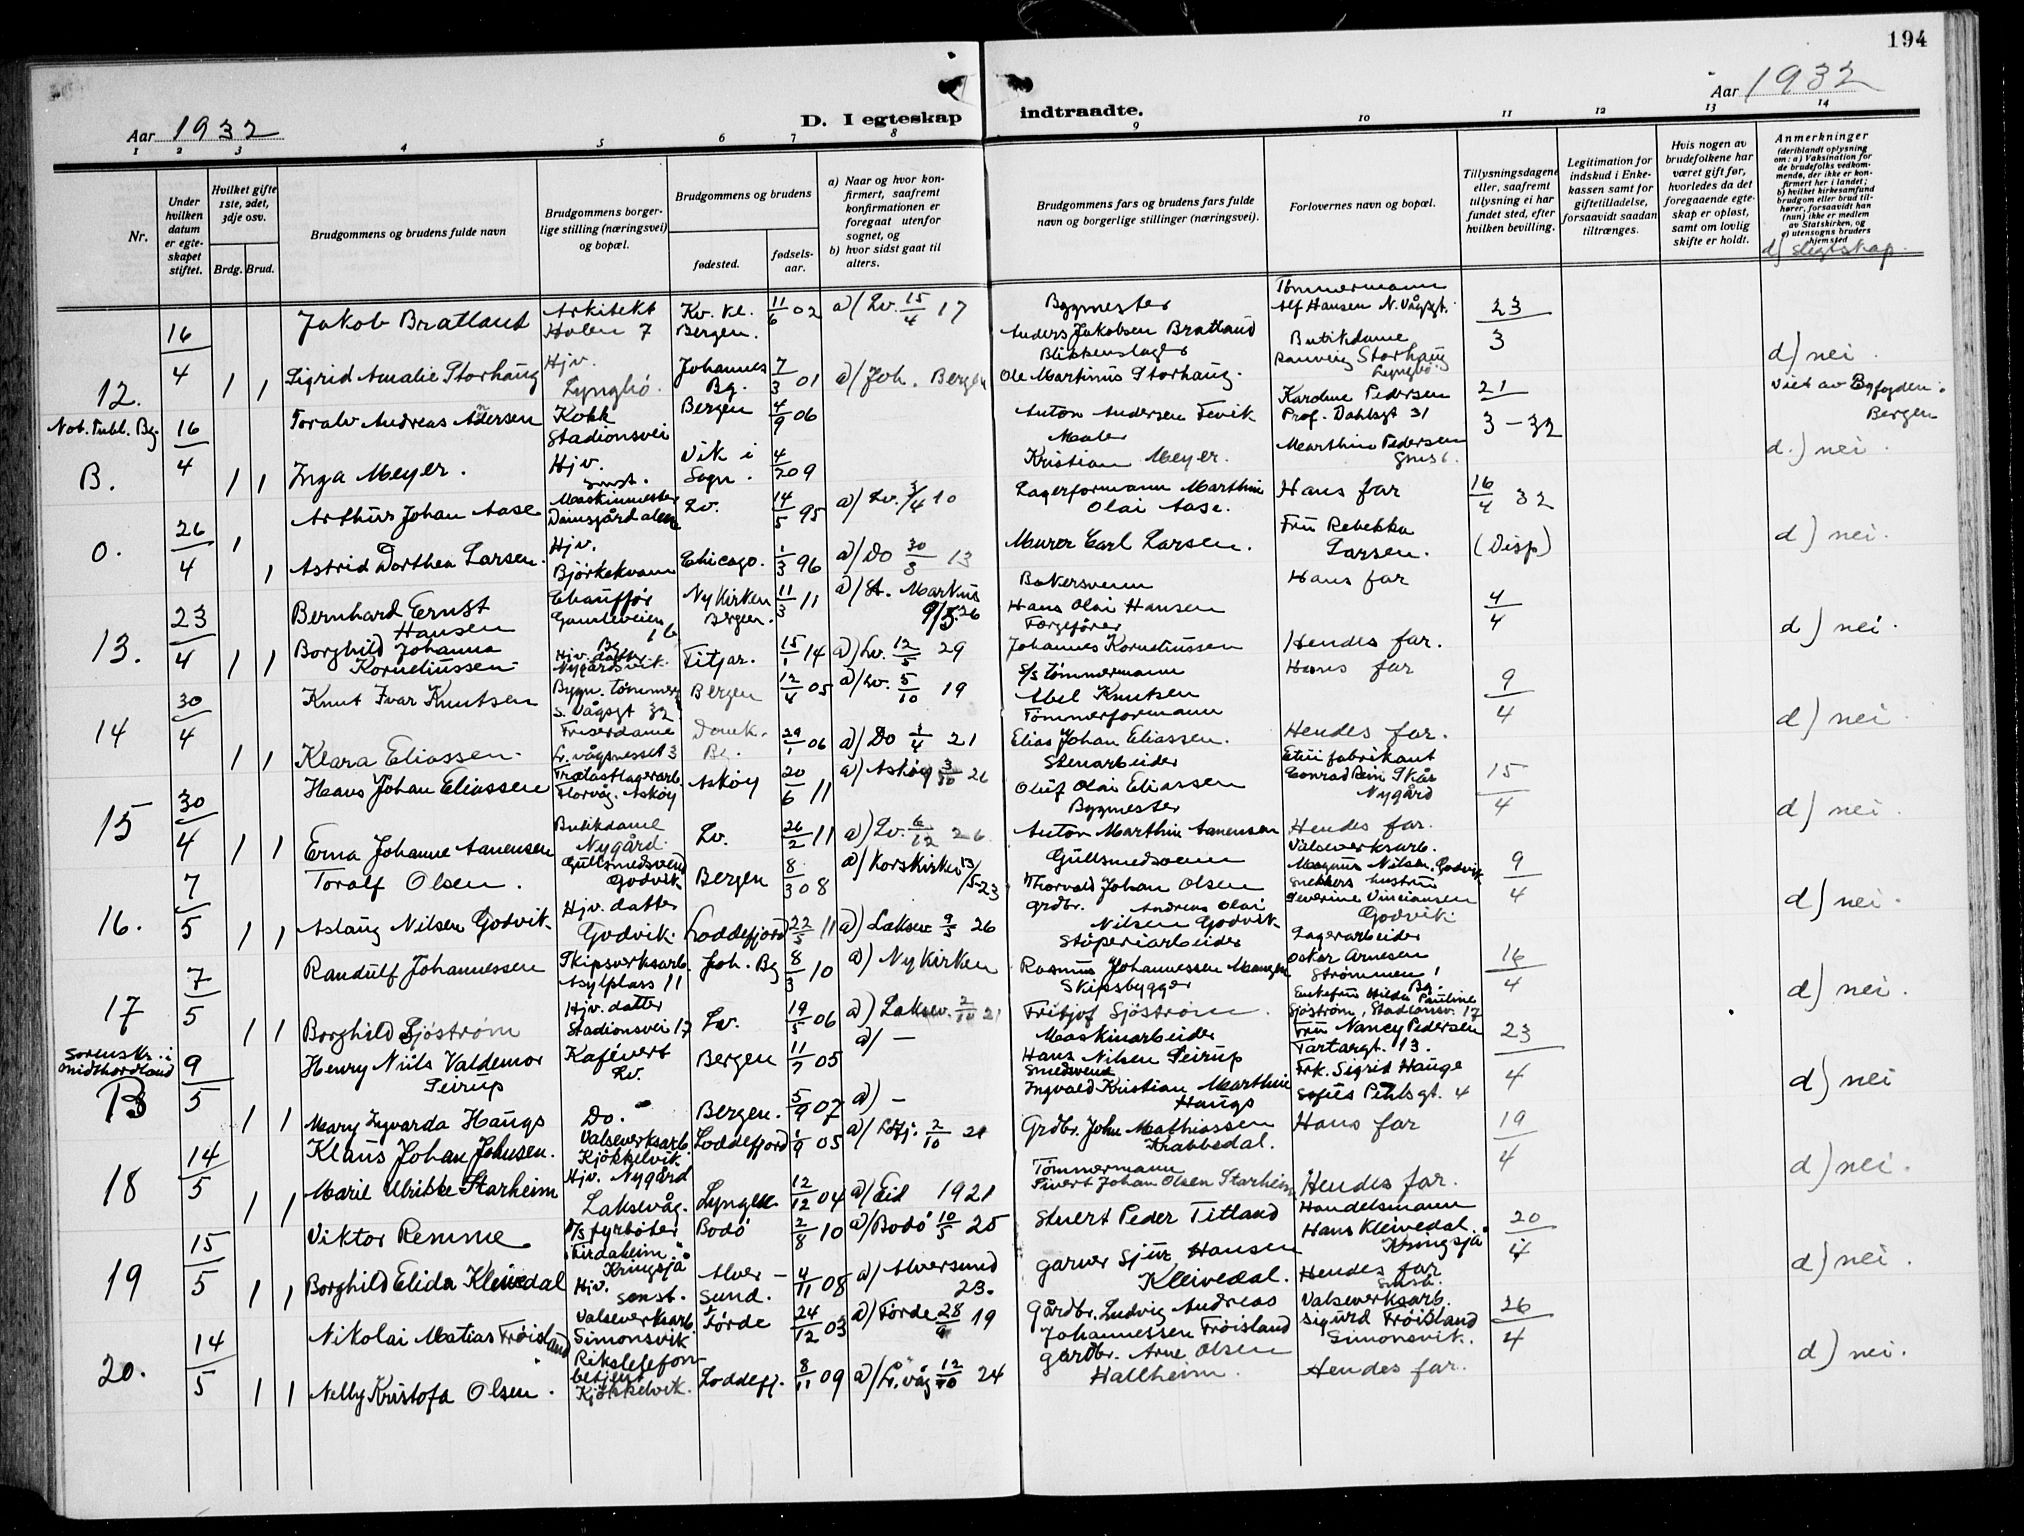 194
Aar 1932
D. I egteskap indtraadte.
Aar 1932
1 2 3 4 5 6 7 8 9 10 11 12 13 14
Nr.
Under hvilken datum er egteskapet stiftet.
Hvilket gifte 1ste, 2det, 3dje osv.
Brdg. Brud.
Brudgommens og brudens fulde navn
Brudgommens borgerlige stilling (næringsvei) og bopæl.
Brudgommens og brudens
fødested.
fødselsaar.
a) Naar og hvor konfirmert, saafremt konfirmationen er foregaat utenfor sognet, og
b) hvor sidst gaat til alters.
Brudgommens fars og brudens fars fulde navn og borgerlige stillinger (næringsvei).
Forlovernes navn og bopæl.
Tillysningsdagene eller, saafremt tillysning ei har fundet sted, efter hvilken bevilling.
Legitimation for indskud i Enkekassen samt for giftetilladelse, forsaavidt saadan tiltrænges.
Hvis nogen av brudefolkene har været gift før, hvorledes da det foregaaende egteskap er opløst, samt om lovlig skifte er holdt.
Anmerkninger (deriblandt oplysning om: a) Vaksination for de brudefolks vedkommende, der ikke er konfirmert her i landet; b) hvilket kirkesamfund brudgom eller brud tilhører, forsaavidt han (hun) ikke er medlem av Statskirken, og c) utensogns bruders hjemsted
d) Slegtskap.
12. 16/4 1 1
Jakob Bratland Arkitekt Holen 7 Kv. kl. Bergen. 11/6 02 a) Lv. 15/4 17 Bygmester Anders Jakobsen Bratland Tømmermann Alf Hansen N. Vågsgt. 23/3
Sigrid Amalie Storhaug Hjv. Lyngbö. Johannes Bg. 7/3 01 a) Joh. Bergen Blikkenslager Ole Martinus Storhaug. Butikdame Ranveig Storhaug Lyngbö d) nei.
Not. Publ. Bg. B. 16/4 1 1
Toralv Andreas Andersen Kokk Stadionsvei Bergen 4/9 06 Anton Andersen Fevik Karoline Pedersen Prof. Dahlsgt 31 21/3 - 32 Viet av Byfogden Bergen
Inga Meyer. Hjv. smst. Vik i Sogn. 4/20 9 Maler Kristian Meyer. Marthin Pedersen smst. d.) nei.
O. 26/4 1 1
Arthur Johan Aase Maskinmester Damsgårdalen Lv. 14/5 95 a) Lv. 3/4 10 Lagerformann Marthin Olai Aase. Hans far 16/4 32
Astrid Dorthea Larsen. Hjv. Björkekvam Chicago. 1/3 96 a) Do 30/3 13 Murer Carl Larsen. Fru Rebekka Larsen. (Disp) d) nei.
13. 23/4 1 1
Bernhard Ernst Hansen Chaufför Gamleveien 16 Nykirken Bergen. 11/3 11 a) St. Markus 9/5 26 Bakersvenn Hans Olai Hansen Hans far 4/4
Borghild Johanna Korneliussen Hjv. datter Nygårdsvik. Fitjar. 15/1 14 a) Lv. 12/5 29 Færgefører Johannes Korneliussen Hendes far. d) nei.
14 30/4 1 1
Knut Ivar Knutsen Bygn. tømmerm. S. Vågsgt 32 Bergen 12/4 05 a) Lv. 5/10 19 S/S tømmermann Abel Knutsen Hans far 9/4
Klara Eliassen Friserdame Lr. vågsnesset 3 Domk. Bg. 29/1 06 a) Do 3/4 21 Tømmerformann Elias Johan Eliassen. Hendes far. d) nei.
15 30/4 1 1
Hans Johan Eliassen Trælastlagerarb. Florvåg. Askøy Askøy 20/6 11 a) Askøy 3/10 26 Stenarbeider Oluf Olai Eliassen Etuifabrikant Conrad Rein Skår Nygård 15/4
Erna Johanne Aanensen Butikdame Nygård Lv. 26/2 11 a) Lv. 6/12 26 Bygmester Anton Marthin Aanensen Hendes far. d) nei.
16. 7/5 1 1
Toralf Olsen. Gullsmedsvend Godvik Bergen 8/3 08 a) Korskirken 13/5 23 Gullsmedsvenn Thorvald Johan Olsen Valseverksarb. Magnus Nilsen, Godvik 9/4
Aslaug Nilsen Godvik Hjv. datter Godvik Loddefjord 22/5 11 a) Laksev. 9/5 26 Grdbr. Andreas Olai Nilsen Godvik Snekkers hustru Severine Vinciansen Godvik d) nei.
17 7/5 1 1
Randulf Johannessen Skipsverksarb. Asylplass 11 Joh. Bg 8/3 10 a) Nykirken Støperiarbeider Rasmus Johannessen Manger Lagerarbeider Oskar Arnesen Strømmen Bg. 16/4
Borghild Sjöström Hjv. datter Stadionsvei 17 Lv. 19/5 06 a) Laksev. 2/10 21 Skipsbygger Fritjof Sjöström. Enkefru Hilda Pauline Sjöström, Stadionsv. 17 d) nei.
Sorenskr. i Midthordland B 9/5 1 1
Henry Niils Valdemar Seirup Kafévert Lv. Bergen 11/7 05 a) - Maskinarbeider Hans Nilsen Seirup Fru Nancy Pedersen Tartargt. 13. 23/4
Mary Ingvarda Haugs Do. Bergen. 5/9 07 a) - Smedsvend Ingvald Kristian Marthin Haugs Frk. Sigrid Hauge Sofus Pihlsgt. 4 d) nei
18 14/5 1 1
Klaus Johan Johnsen. Valseverksarb. Kjøkkelvik Loddefjord 1/9 05 a) Lfj. 2/10 21 Grdbr. John Mathiassen Krabbedal. Hans far 19/4
Marie Ulrikke Starheim Hjv. Nygård Laksevåg. Lyngen 12/12 04 a) Eid 1921 Tømmermann Sivert Johan Olsen Starheim Hendes far. d) nei.
19 15/5 1 1
Viktor Remme D/S fyrbøter Firdaheim Kringsjå Bodö 2/8 10 a) Bodö 10/5 25 Stuert Peder Titland Handelsmann Hans Kleivedal. Kringsjå 20/4
Borghild Elida Kleivedal Hjv. smst. Alversund. 4/11 08 a) Alversund 23. Garver Sjur Hansen Kleivedal. Hendes far smst. d) nei.
20. 14/5 1 1
Nikolai Matias Frøisland Valseverksarb. Simonsvik Förde 24/12 03 a) Förde 28/9 19 Gårdbr. Ludvig Andreas Johannessen Frøisland Valseverksarb. Sigurd Frøisland Simonsvik. 26/4
Nelly Kristofa Olsen. Rikstelefonbetjent Kjøkkelvik. Loddefj. 8/11 09 a) Lr. våg 12/10 24 Gardbr. Arne Olsen Hallheim. Hendes far. d) nei.